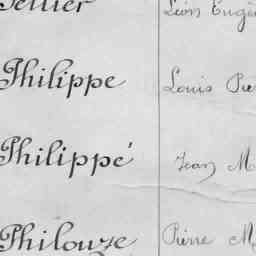 Tellier Léon Eugè
Philippe Louis Pie
Philippé Jean M
Philouze Pierre M